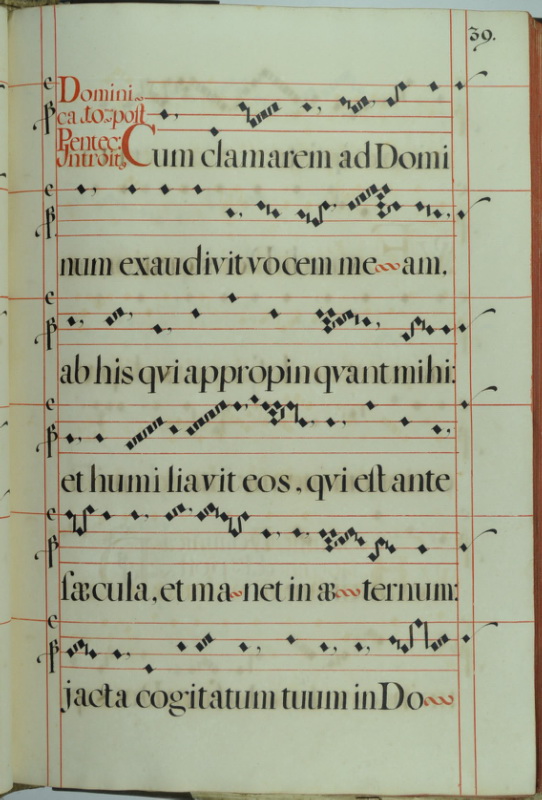 39.
Domini~
ca .10. post
Pentec:
Introit9
Cum clamarem ad Domi
num exaudivit vocem me~am.
ab his qvi appropinqvant mihi:
et humiliavit eos, qvi eſt ante
ſæcula, et ma~net in æ~ternum:
jacta cogitatum tuum in Do~